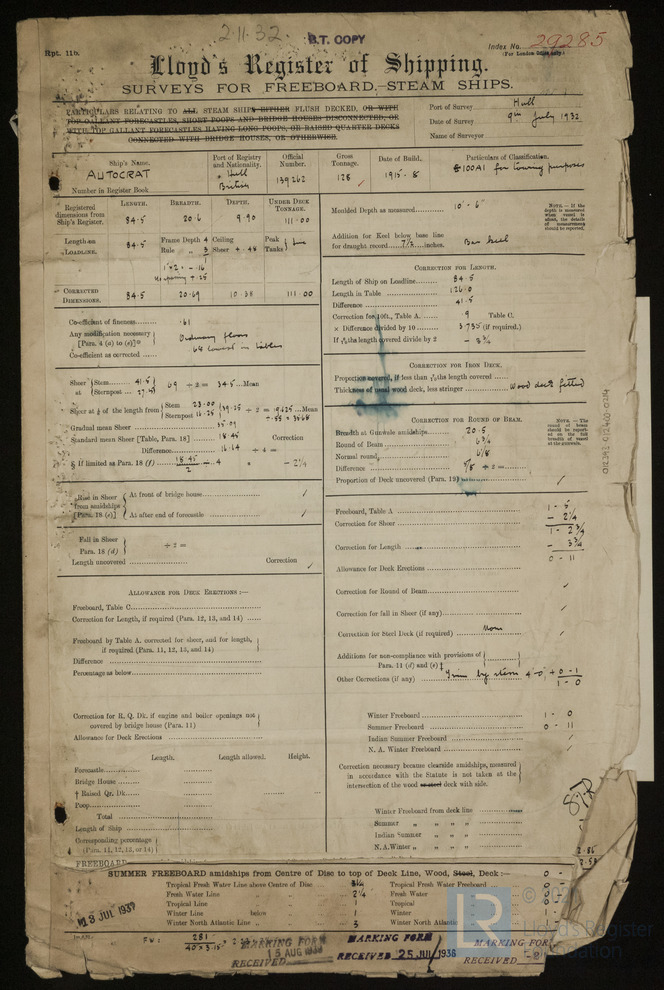 2.11.32
B.T. COPY
Rpt. 11b.
Index No. 29285
(For London Office only.)
Lloyd's Register of Shipping.
SURVEYS FOR FREEBOARD.—STEAM SHIPS.
PARTICULARS RELATING TO ALL STEAM SHIPS EITHER FLUSH DECKED, OR WITH
TOP GALLANT FORECASTLES, SHORT POOPS AND BRIDGE HOUSES DISCONNECTED, OR
WITH TOP GALLANT FORECASTLES HAVING LONG POOPS, OR RAISED QUARTER DECKS
CONNECTED WITH BRIDGE HOUSES, OR OTHERWISE.
Port of Survey Hull
Date of Survey 9th July 1932
Name of Surveyor
Ship's Name. Port of Registry and Nationality. Official Number. Gross Tonnage. Date of Build. Particulars of Classification.
AUTOCRAT Hull British 139262 128 1915-8 100A1 for towing purposes
Number in Register Book
LENGTH. BREADTH. DEPTH. UNDER DECK TONNAGE.
Registered dimensions from Ship's Register. 84.5 20.6 9.90 111.00
Length on LOADLINE. 84.5 Frame Depth 4 Rule 3 Ceiling Sheer + .48 Peak Tanks
CORRECTED DIMENSIONS. 84.5 20.69 10.38 111.00
Co-efficient of fineness .61
Any modification necessary [Para. 4 (a) to (e)] Ordinary floors
Co-efficient as corrected .64 lowest in tables
Sheer at Stem 41.5 Sternpost 27.5 69 ÷ 2 = 34.5 Mean
Sheer at 1/8 of the length from Stem 23.00 Sternpost 16.25 39.25 ÷ 2 = 19.625 Mean
÷ .55 = 35.68
Gradual mean Sheer 35.09
Standard mean Sheer [Table, Para. 18] 18.45 Correction
Difference 16.14 ÷ 4 =
§ If limited as Para. 18 (f) 18.45/2 ÷ 4 " - 2 1/4
Rise in Sheer from amidships [Para. 18 (e)] At front of bridge house
At after end of forecastle
Fall in Sheer Para. 18 (d) ÷ 2 =
Length uncovered Correction
ALLOWANCE FOR DECK ERECTIONS :—
Freeboard, Table C
Correction for Length, if required (Para. 12, 13, and 14)
Freeboard by Table A. corrected for sheer, and for length,
if required (Para. 11, 12, 13, and 14)
Difference
Percentage as below
Correction for R. Q. Dk. if engine and boiler openings not
covered by bridge house (Para. 11)
Allowance for Deck Erections
Length. Length allowed. Height.
Forecastle
Bridge House
† Raised Qr. Dk
Poop
Total
Length of Ship
Corresponding percentage
(Para. 11, 12, 13, or 14)
Moulded Depth as measured 10' - 6"
NOTE.—If the depth is measured when vessel is afloat, the details of measurement should be reported.
Addition for Keel below base line
for draught record 7 1/2 inches. Bar keel
CORRECTION FOR LENGTH.
Length of Ship on Loadline 84.5
Length in Table 126.0
Difference 41.5
Correction for 10ft., Table A. .9 Table C.
× Difference divided by 10 3.735 (if required.)
If 6/10ths length covered divide by 2 - 3 3/4
CORRECTION FOR IRON DECK.
Proportion covered, if less than 7/10ths length covered
Thickness of usual wood deck, less stringer Wood deck fitted
CORRECTION FOR ROUND OF BEAM.
Breadth at Gunwale amidships 20.5
Round of Beam 6 3/4
Normal round
Difference 7/8 ÷ 2 =
Proportion of Deck uncovered (Para. 19)
NOTE.—The round of beam should be reported on the full breadth of vessel at the gunwale.
Freeboard, Table A 1 - 5
Correction for Sheer - 2 1/4
1 - 2 3/4
Correction for Length - 3 3/4
0 - 11
Allowance for Deck Erections
Correction for Round of Beam
Correction for fall in Sheer (if any)
Correction for Steel Deck (if required) None
Additions for non-compliance with provisions of
Para. 11 (d) and (e) ‡
Other Corrections (if any) Trim by stern 4'-0" + 0 - 1
1 - 0
Winter Freeboard 1 - 0
Summer Freeboard 0 - 11
Indian Summer Freeboard
N. A. Winter Freeboard
Correction necessary because clearside amidships, measured
in accordance with the Statute is not taken at the
intersection of the wood or steel deck with side.
Winter Freeboard from deck line
Summer " " " "
Indian Summer " " " "
N.A. Winter " " " "
FREEBOARD
SUMMER FREEBOARD amidships from Centre of Disc to top of Deck Line, Wood, Steel, Deck :—
Tropical Fresh Water Line above Centre of Disc 3 1/4 Tropical Fresh Water Freeboard
Fresh Water Line " " 2 1/4 Fresh Water "
Tropical Line " " 1 Tropical "
Winter Line below " 1 Winter "
Winter North Atlantic Line " " 3 Winter North Atlantic "
18 JUL 1932
F.W. 281 / 40 × 3.15
MARKING FORM
15 AUG 1938
RECEIVED
MARKING FORM
RECEIVED 25 JUL 1938
MARKING FORM
RECEIVED
LR
Lloyd's Register
Foundation